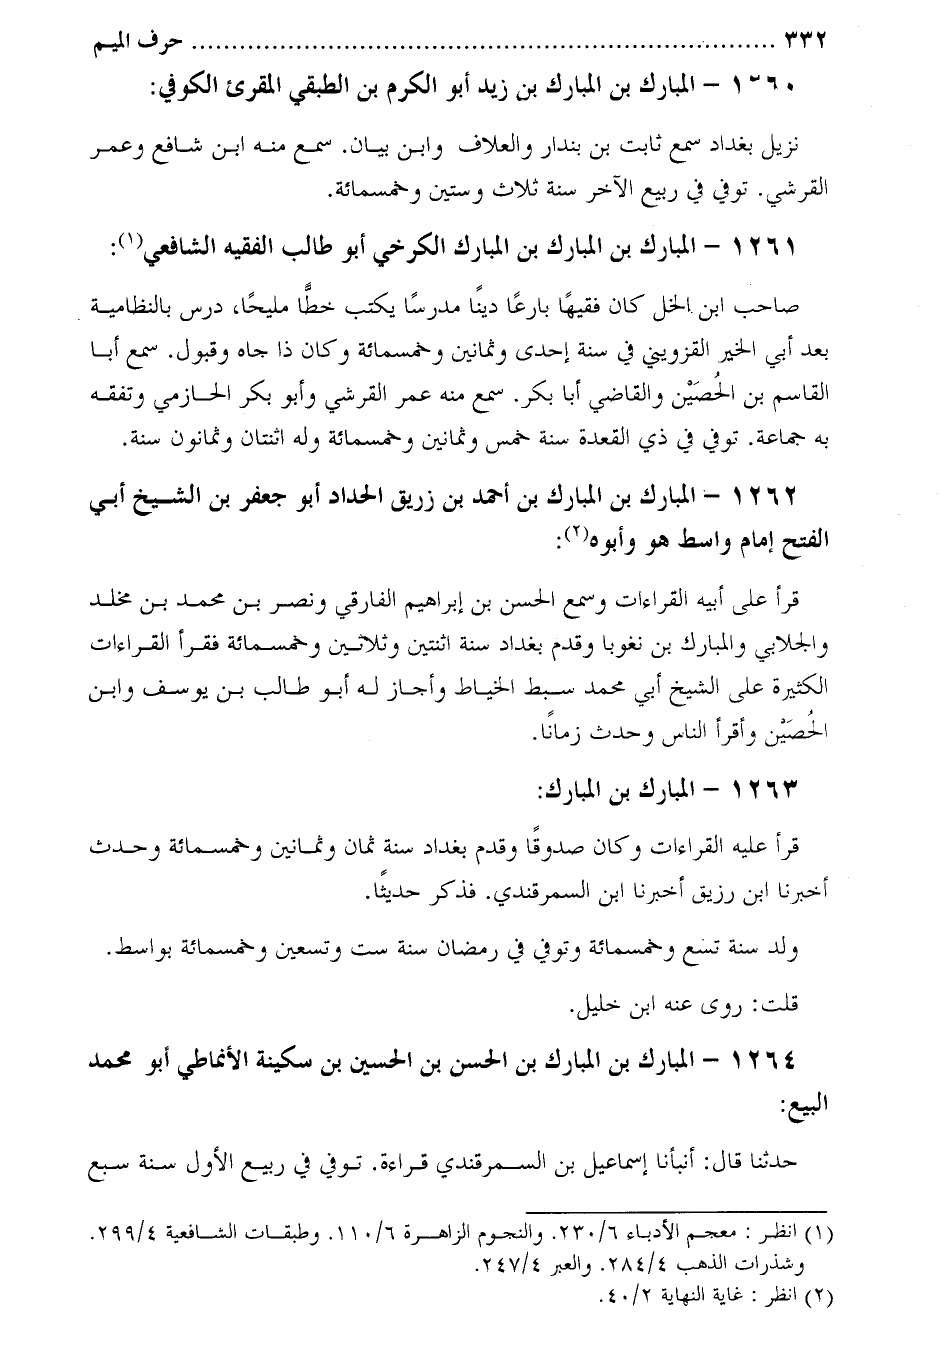 ٣٣٢ ........................................................................ حرف الميم
١٢٦٠ – المبارك بن المبارك بن زيد أبو الكرم بن الطبقي المقرئ الكوفي:
نزيل بغداد سمع ثابت بن بندار والعلاف وابن بيان. سمع منه ابن شافع وعمر
القرشي. توفي في ربيع الآخر سنة ثلاث وستين وخمسمائة.
١٢٦١ – المبارك بن المبارك بن المبارك الكرخي أبو طالب الفقيه الشافعي(١):
صاحب ابن الخل كان فقيهًا بارعًا دينًا مدرسًا يكتب خطًّا مليحًا، درس بالنظامية
بعد أبي الخير القزويني في سنة إحدى وثمانين وخمسمائة وكان ذا جاه وقبول. سمع أبا
القاسم بن الحُصَيْن والقاضي أبا بكر. سمع منه عمر القرشي وأبو بكر الحازمي وتفقه
به جماعة. توفي في ذي القعدة سنة خمس وثمانين وخمسمائة وله اثنتان وثمانون سنة.
١٢٦٢ – المبارك بن المبارك بن أحمد بن زريق الحداد أبو جعفر بن الشيخ أبي
الفتح إمام واسط هو وأبوه(٢):
قرأ على أبيه القراءات وسمع الحسن بن إبراهيم الفارقي ونصر بن محمد بن مخلد
والجلابي والمبارك بن نغوبا وقدم بغداد سنة اثنتين وثلاثين وخمسمائة فقرأ القراءات
الكثيرة على الشيخ أبي محمد سبط الخياط وأجاز له أبو طالب بن يوسف وابن
الحُصَيْن وأقرأ الناس وحدث زمانًا.
١٢٦٣ – المبارك بن المبارك:
قرأ عليه القراءات وكان صدوقًا وقدم بغداد سنة ثمان وثمانين وخمسمائة وحدث
أخبرنا ابن رزيق أخبرنا ابن السمرقندي. فذكر حديثًا.
ولد سنة تسع وخمسمائة وتوفي في رمضان سنة ست وتسعين وخمسمائة بواسط.
قلت: روى عنه ابن خليل.
١٢٦٤ – المبارك بن المبارك بن الحسن بن الحسين بن سكينة الأنماطي أبو محمد
البيع:
حدثنا قال: أنبأنا إسماعيل بن السمرقندي قراءة. توفي في ربيع الأول سنة سبع
(١) انظر : معجم الأدباء ٢٣٠/٦. والنجوم الزاهرة ١١٠/٦. وطبقات الشافعية ٢٩٩/٤.
وشذرات الذهب ٢٨٤/٤. والعبر ٢٤٧/٤.
(٢) انظر : غاية النهاية ٤٠/٢.